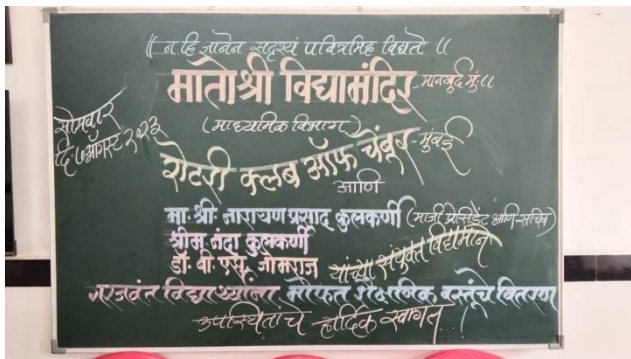 ॥ न हि ज्ञानेन सदृश्यं पवित्रमिह विद्यते ॥
मातोश्री विद्यामंदिर - मानखुर्द मुं.८८
(माध्यमिक विभाग)
सोमवार
दि. ७ ऑगस्ट २०२३
रोटरी क्लब ऑफ चेंबूर - मुंबई
आणि
मा. श्री. नारायण प्रसाद कुलकर्णी (माजी प्रेसिडेंट आणि सचिव)
श्रीम. नंदा कुलकर्णी
डॉ. बी. एस. जोमराज
यांच्या संयुक्त विद्यमाने
गरजवंत विद्यार्थ्यांना मोफत शैक्षणिक वस्तूंचे वितरण
उपस्थितांचे हार्दिक स्वागत...!